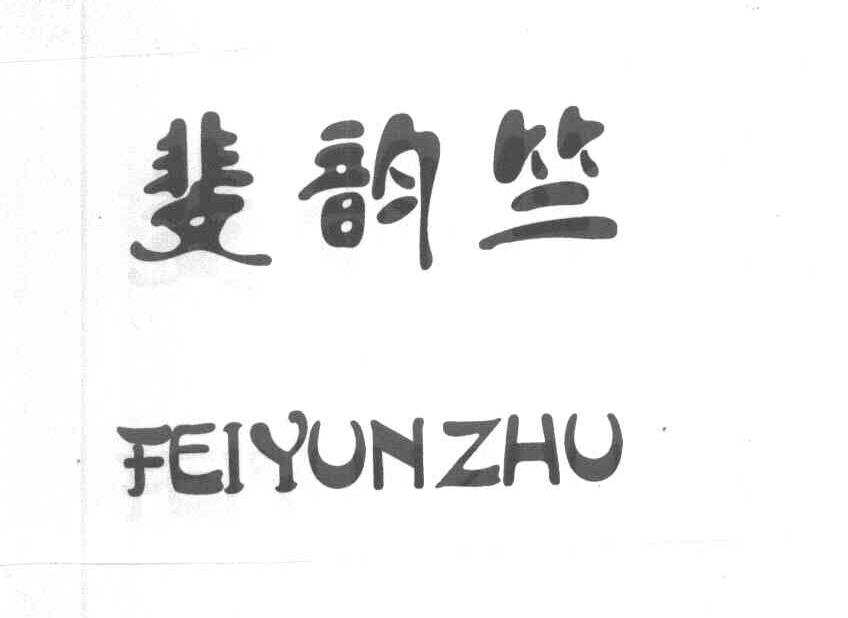 斐韵竺
FEIYUNZHU